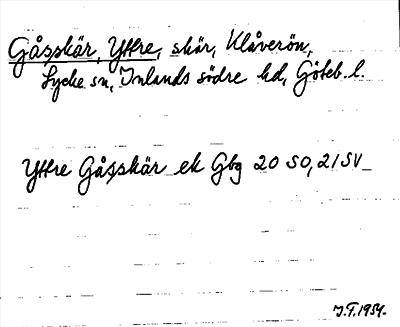 Gåsskär, Yttre, skär, Klåverön,
Lycke sn, Inlands södre hd, Göteb. l.
Yttre Gåsskär ek Gbg 20 SO, 21 SV
J.F. 1954.